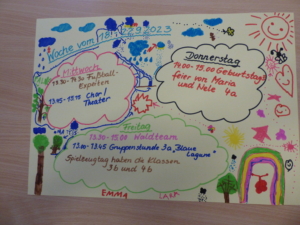 Woche vom 18.-22.9.2023
Mittwoch
13.30-14.30 Fußball-
Experten
13.45-15.15 Chor/
Theater
Donnerstag
14.00-15.00 Geburtstags
feier von Maria
und Nele 4a
Freitag
13.30-15.00 Waldteam
13.00-13.45 Gruppenstunde 3a „Blaue
Lagune"
Spielzeugtag haben die Klassen
3b und 4b
EMMA
LARA